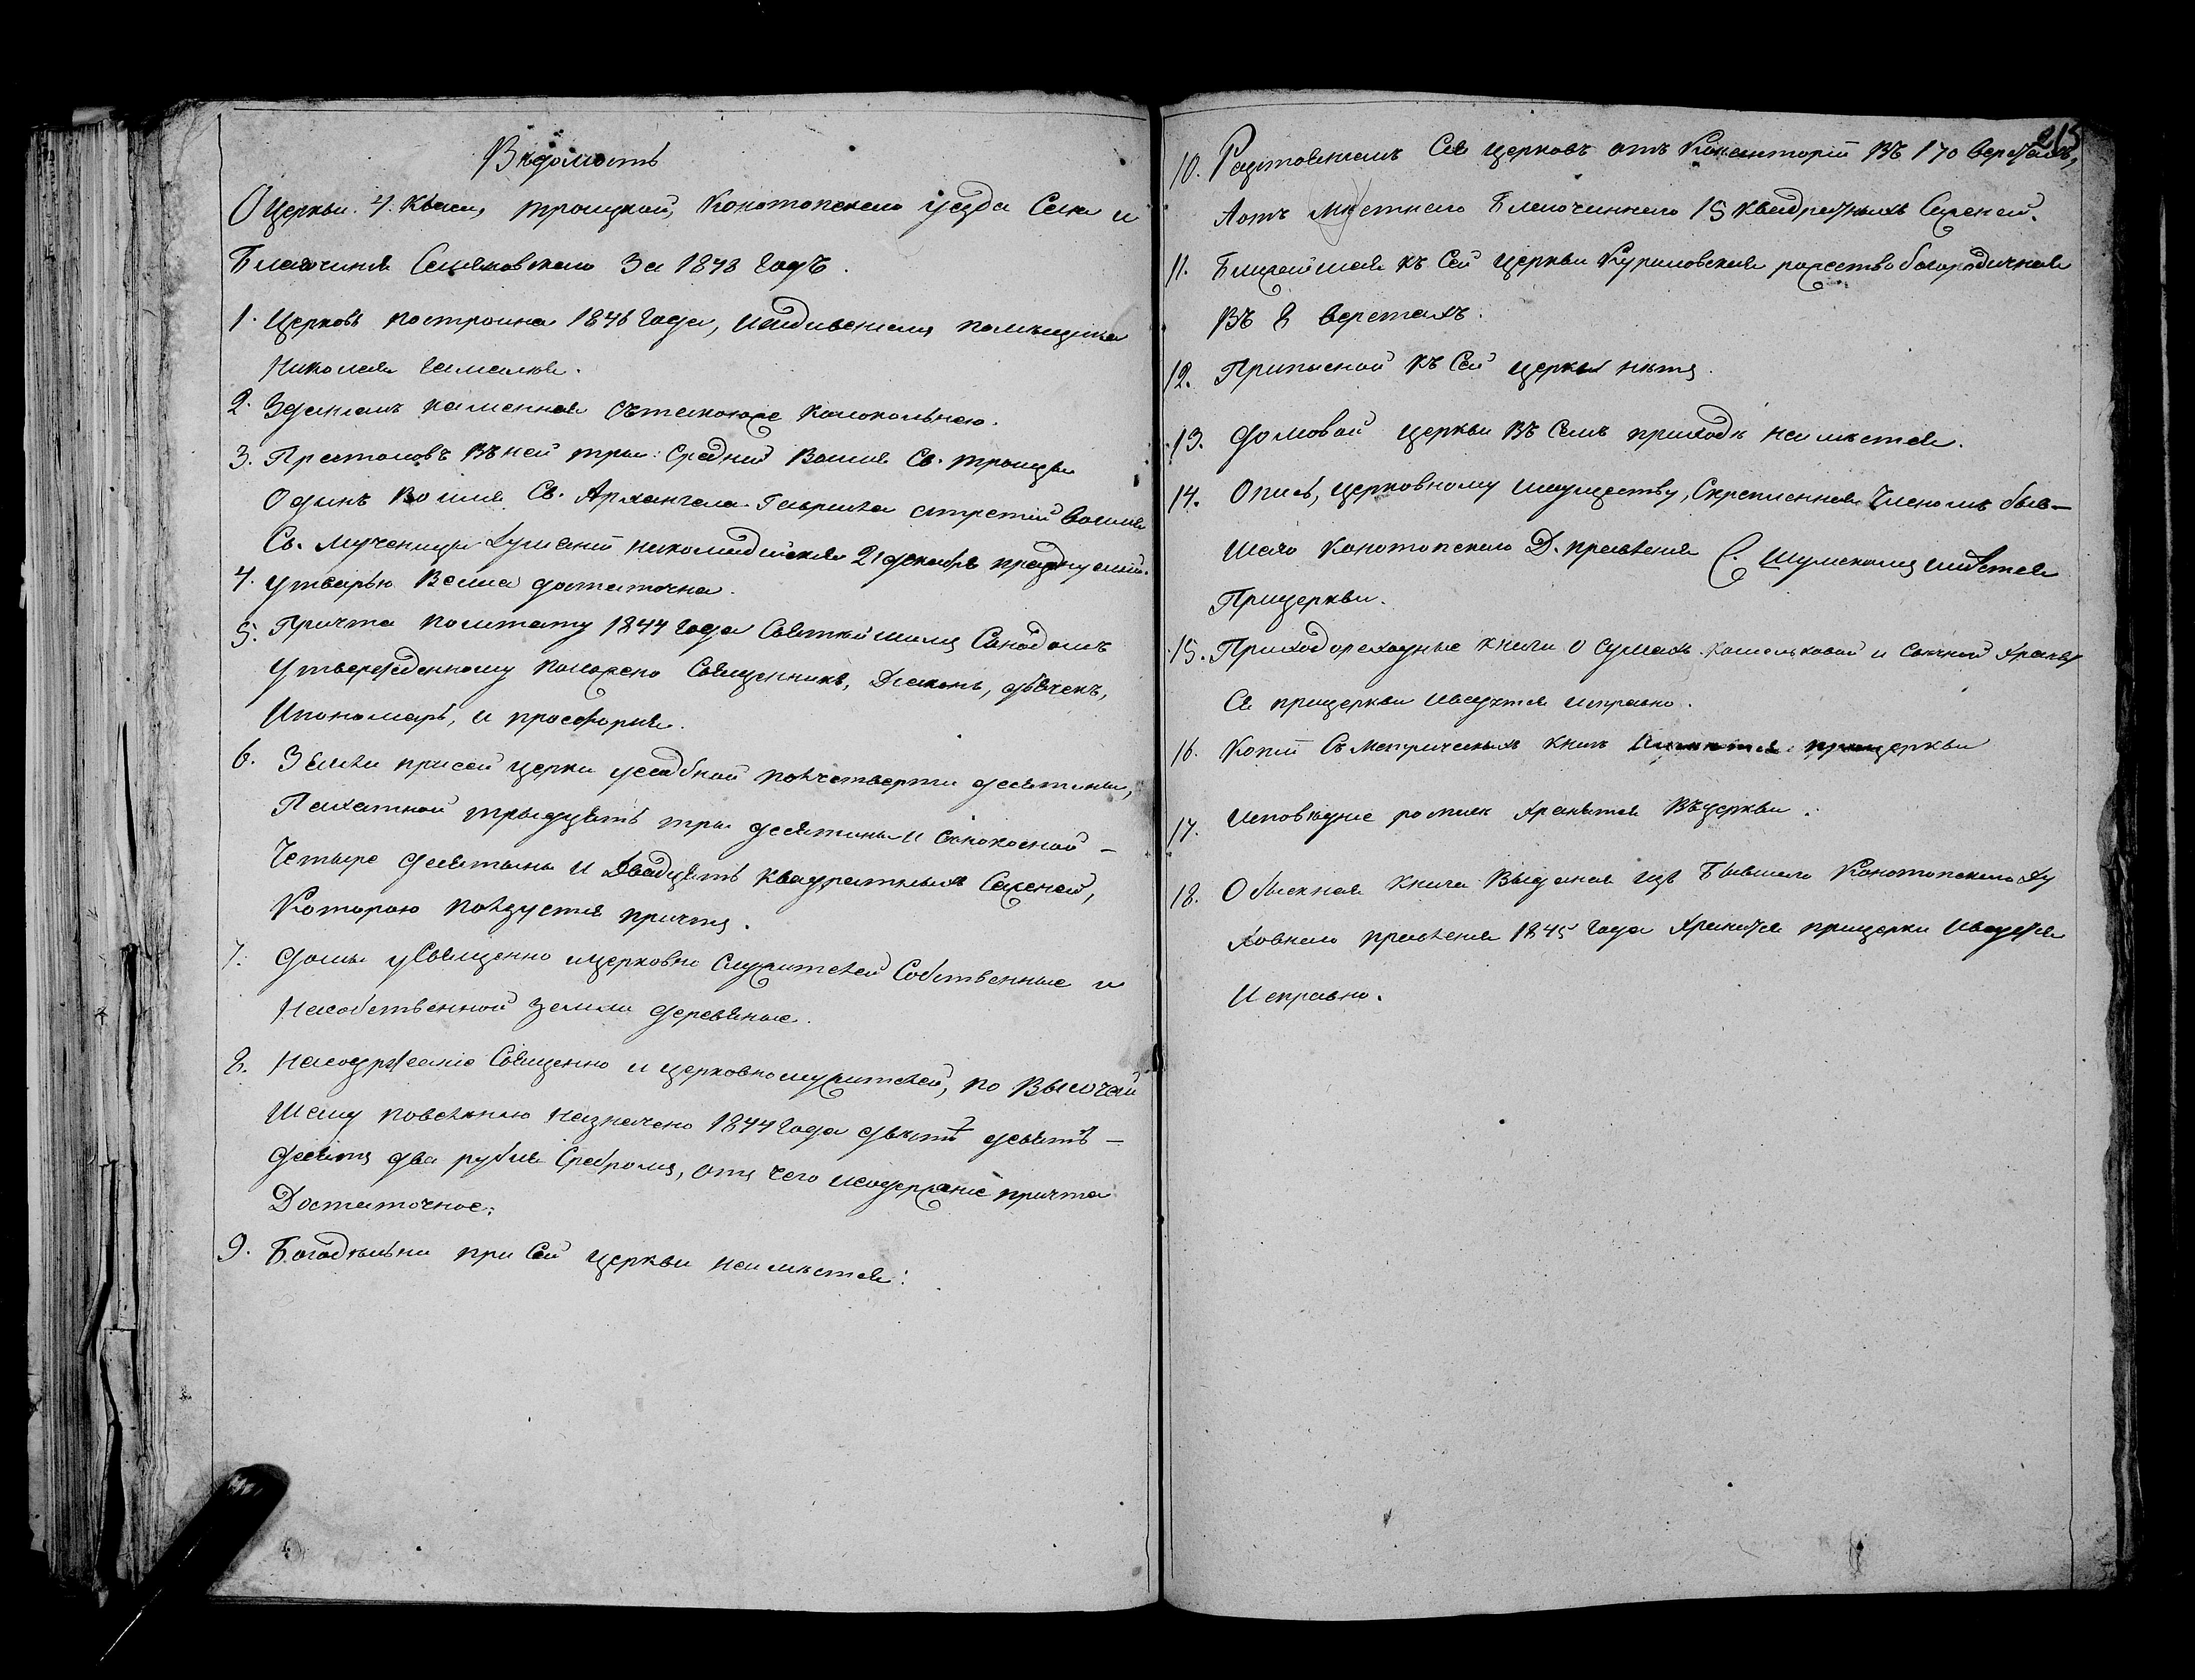 Вѣдомость
О Церкви 4. Класа, троицкой, Конотопскаго уезда Села и
Благочинія Семяновскаго За 1848 годъ.
1. Церковь построина 1846 года, иждивениемъ помѣщика
Николая Гамалѣя.
2. Зданіемъ каменная съ такоюже колокольнею.
3. Престоловъ въ ней три: Средній Воимя Св. троицы
Одынъ во имя Св. Архангела Гавриила атретій воимя
Св. Мученицы Іуліаніи никомидийскія 21 декабря празднуемій.
4. Утварью Весма достаточна.
5. Причта поштату 1844 года Святейшимъ Синодомъ
Утвержденному положено Священникъ, Діаконъ, дьячекъ,
Ипономарь, и просфорня.
6. Земли присей церкви усадбной полчетверти десятины,
Пахатной трыдцять три десятины и Сѣнокосной –
Четыре десятыны и Двадцять квадратныхъ Саженей,
Которою ползуется причтъ.
7. Домы уСвященно ицерковно Служителей Собственные и
Насобственной земли деревяные.
8. Насодржаніе Священно и церковнослужителей, по Высочай
Шему повелѣнію назначено 1844 года двести девять –
десятъ два рубля Сребромъ, отъ чего исодержаніе причта
Достаточное.
9. Богадѣльни при Сей церкви неимѣется.
215
10. Разтояніемъ Ся церковъ отъ Консисторіи въ 170 верстахъ,
Аотъ Местнаго Благочиннаго 15 квадратныхъ Саженей.
11. Ближайшая къ Сей Церкви Куриловская рожество богородичная
Въ 8 верстахъ.
12. Приписной къ Сей церкви нѣтъ.
13. Домовой церкви въ Семъ приходѣ неимѣется.
14. Опись, церковному имуществу, Скрепленная Членомъ быв–
Шаго Конотопскаго Д. правленія С. Шумскимъ имѣется
Прицеркви.
15. Приходорасходные книги о Сумахъ кошельковой и Свѣчной Хранят
Ся прицеркви иведутся исправно.
16. Копіи Съ Метрическихъ книгъ прицеркви
17. Исповѣдніе росписи хранятся въцеркви.
18. Обыскная книга Выданая изъ Бывшаго Конотопскаго Ду
ховнаго правленія 1845 года хранится прицеркви иведется
Исправно.